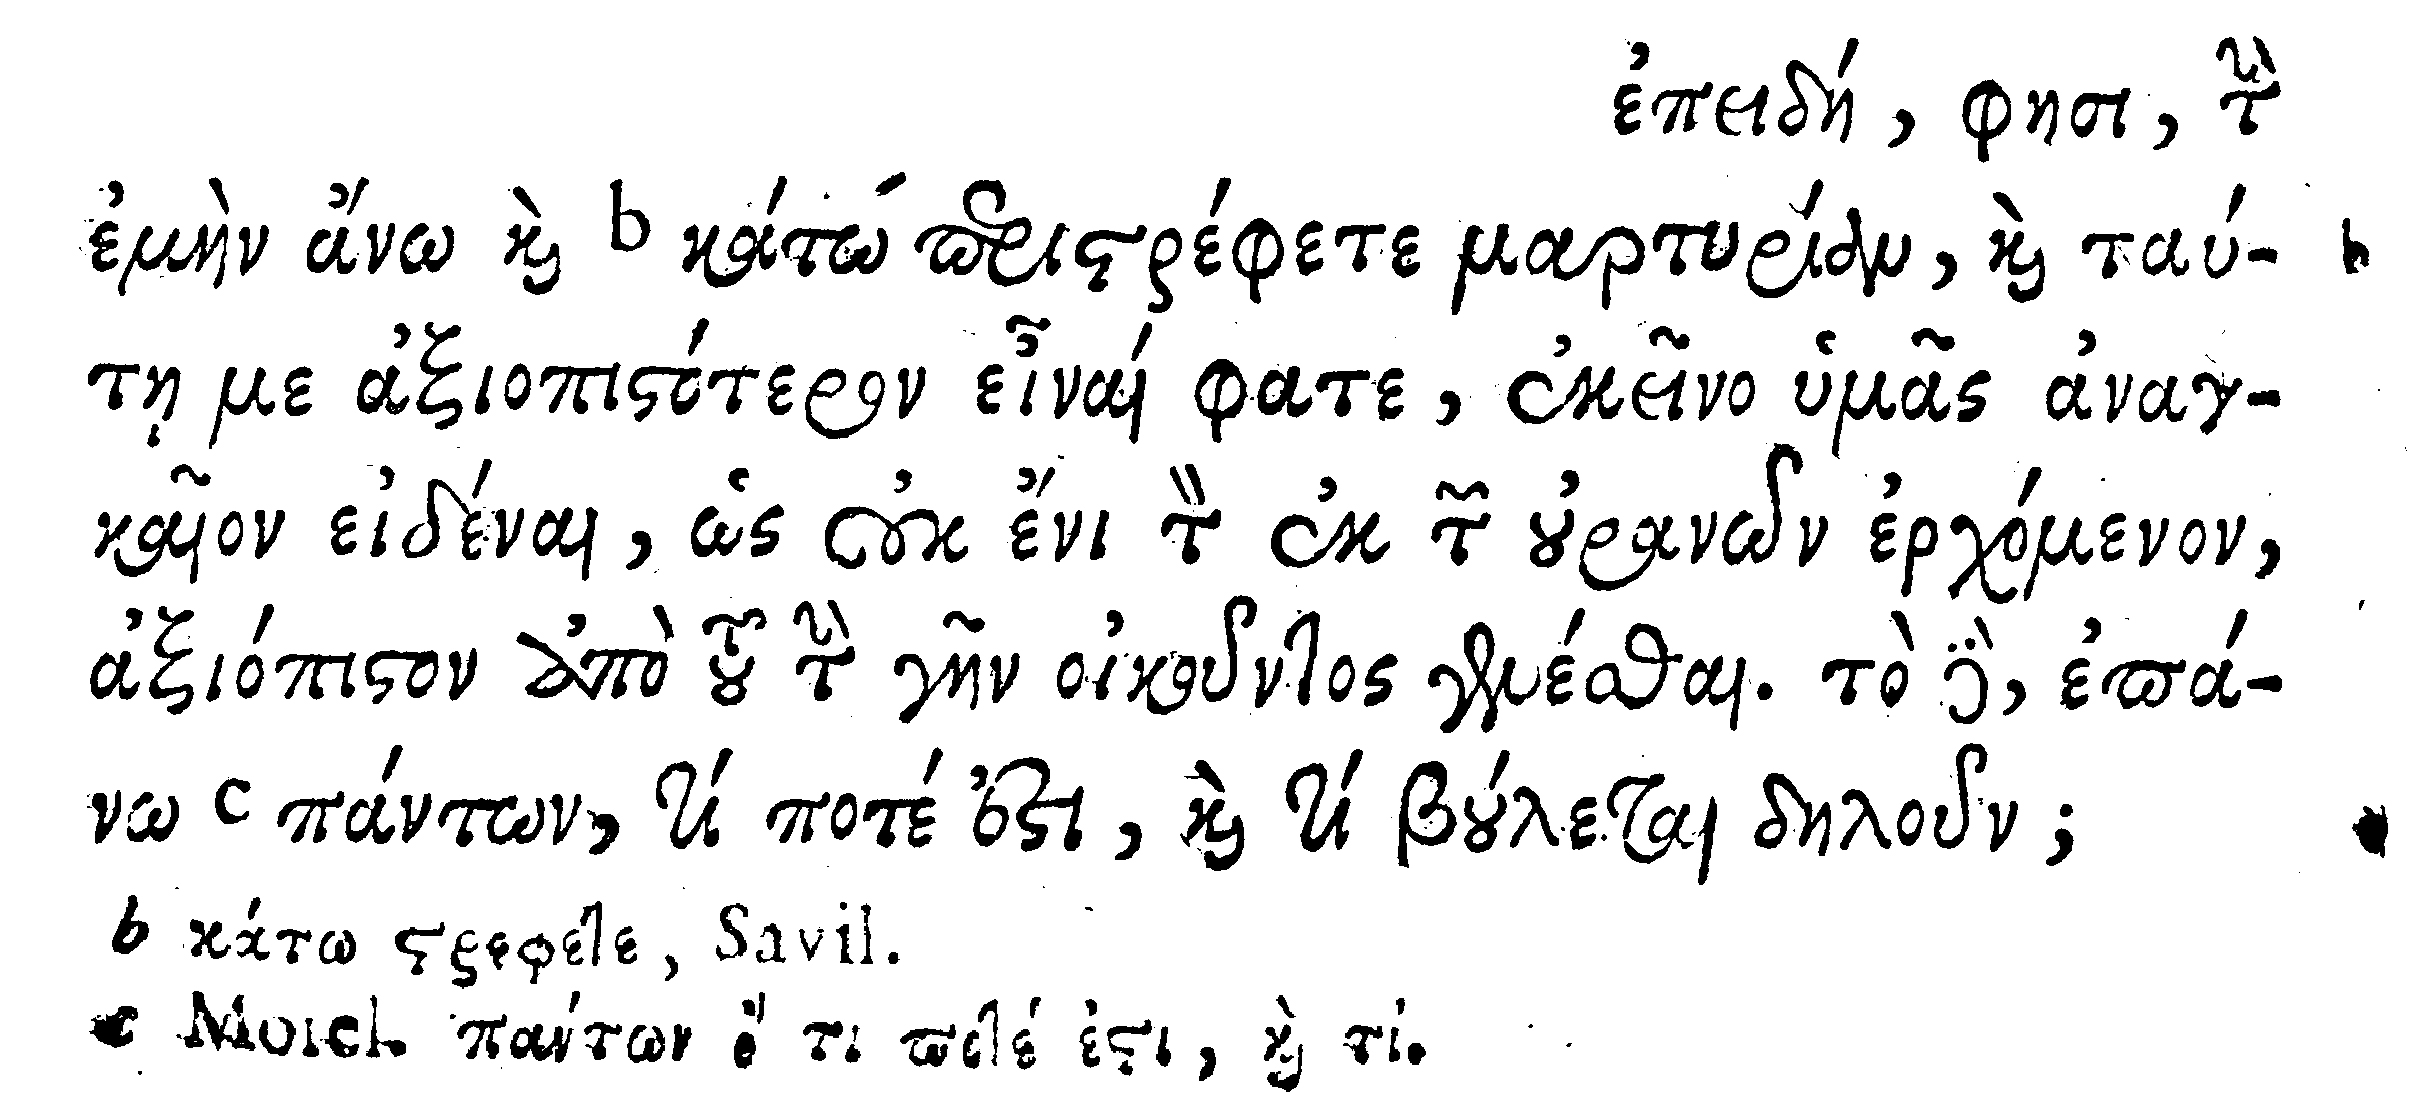 ἐπειδή, φησι, τὴν
ἐμὴν ἄνω καὶ b κάτω περιστρέφετε μαρτυρίαν, καὶ ταύ- b
τῃ με ἀξιοπιστότερον εἶναί φατε, ἐκεῖνο ὑμᾶς ἀναγ-
καῖον εἰδέναι, ὡς οὐκ ἔνι τὸν ἐκ τῶν οὐρανῶν ἐρχόμενον,
ἀξιόπιστον ἀπὸ τοῦ τὴν γῆν οἰκοῦντος γενέσθαι. τὸ δὲ, ἐπά-
νω c πάντων, τί ποτέ ἐστι, καὶ τί βούλεται δηλοῦν;
b κάτω στρέφετε, Savil.
c Morel. πάντων ὅ τι ποτέ ἐστι, καὶ τί.